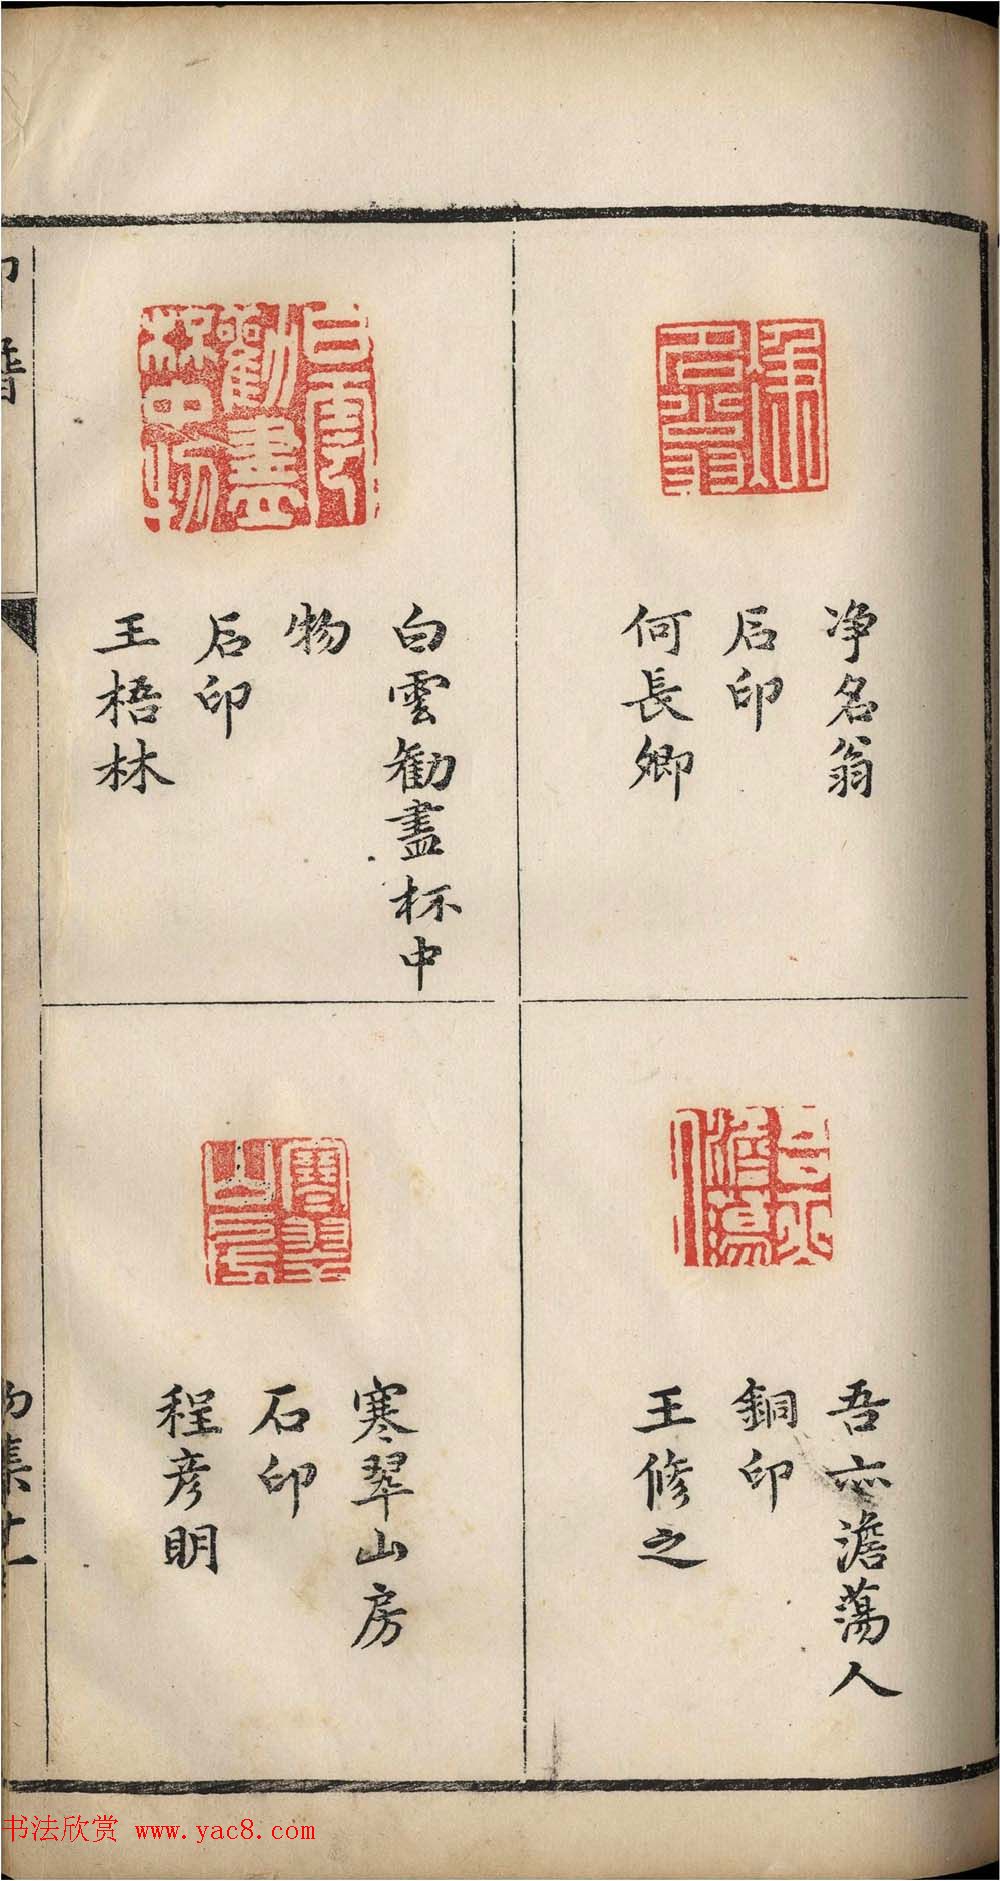 净名翁
石印
何長卿
白雲勸盡杯中
物
石印
王梧林
吾亦澹蕩人
銅印
王修之
寒翠山房
石印
程彦明
书法欣赏 www.yac8.com